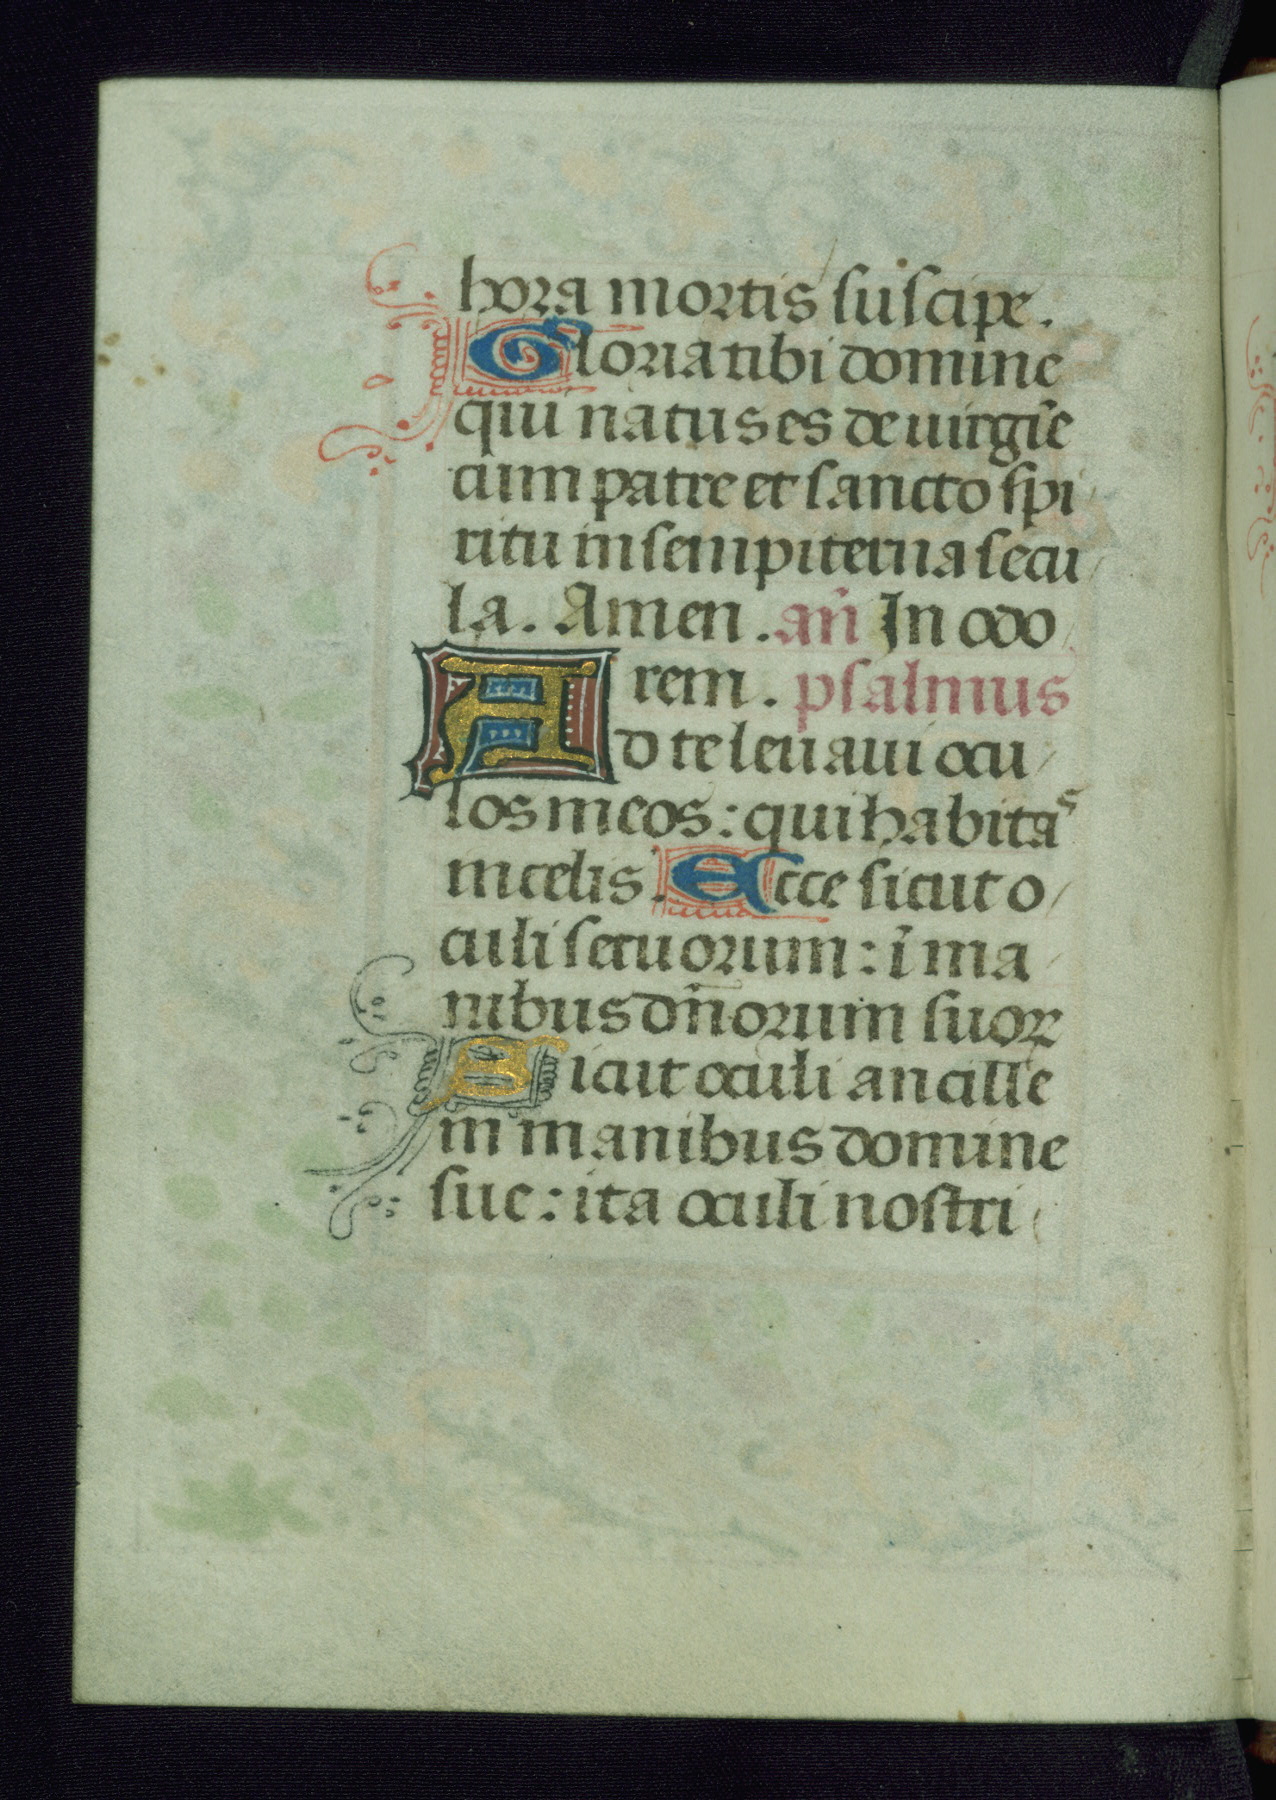 hora mortis suscipe.
Gloria tibi domine
qui natus es de uirgīe
cum patre et sancto spi
ritu in sempiterna secu
la. Amen. an̄ In odo
rem. psalmus
Ad te leuaui ocu
los meos: qui habitas
in celis. Ecce sicut o
culi seruorum: ī ma
nibus dn̄orum suoꝝ
Sicut oculi ancille
in manibus domine
sue: ita oculi nostri